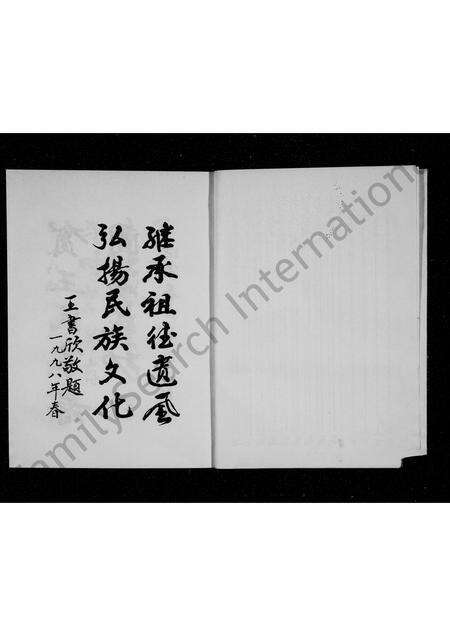 继承祖德遗风
弘揚民族文化
王書欣敬題
一九九八年春
FamilySearch International